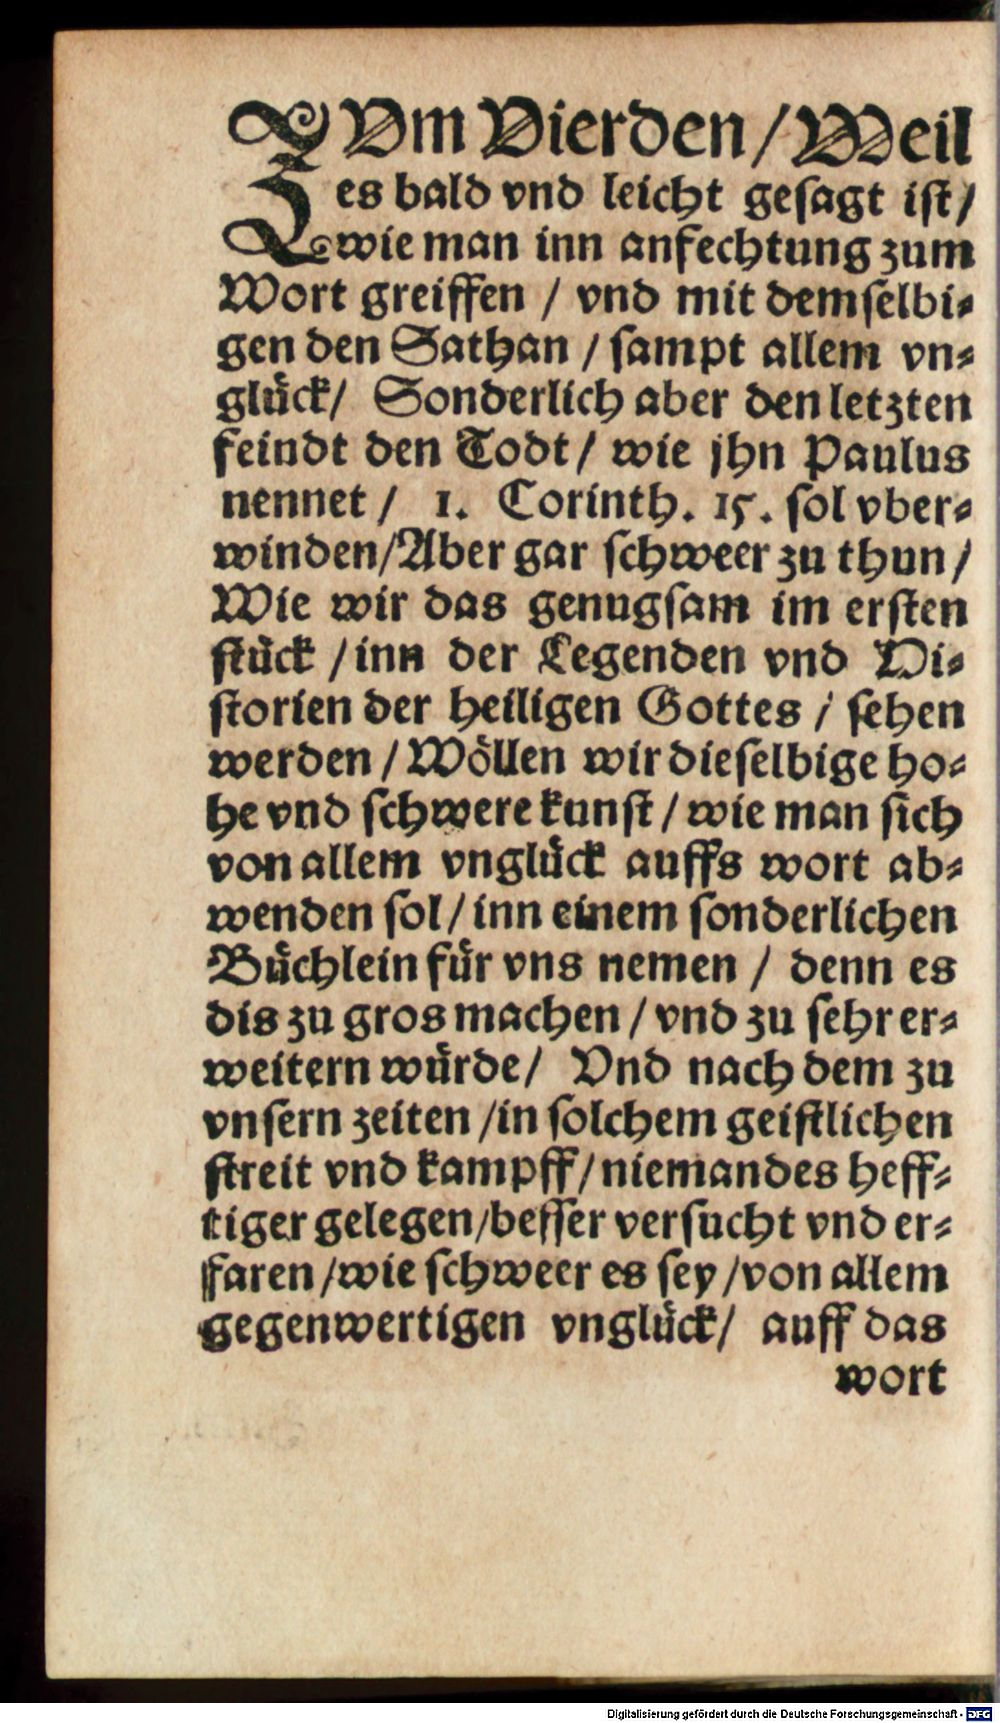 ZVm Vierden / Weil
es bald vnd leicht gesagt ist /
wie man inn anfechtung zum
Wort greiffen / vnd mit demselbi⸗
gen den Sathan / sampt allem vn⸗
glück / Sonderlich aber den letzten
feindt den Todt / wie jhn Paulus
nennet / 1. Corinth. 15. sol vber⸗
winden / Aber gar schweer zu thun /
Wie wir das genugsam im ersten
stück / inn der Legenden vnd Hi⸗
storien der heiligen Gottes / sehen
werden / Wöllen wir dieselbige ho⸗
he vnd schwere kunst / wie man sich
von allem vnglück auffs wort ab⸗
wenden sol / inn einem sonderlichen
Büchlein für vns nemen / denn es
dis zu gros machen / vnd zu sehr er⸗
weitern würde / Vnd nach dem zu
vnsern zeiten / in solchem geistlichen
streit vnd kampff / niemandes heff⸗
tiger gelegen / besser versucht vnd er⸗
faren / wie schweer es sey / von allem
gegenwertigen vnglück / auff das
wort
Digitalisierung gefördert durch die Deutsche Forschungsgemeinschaft - DFG